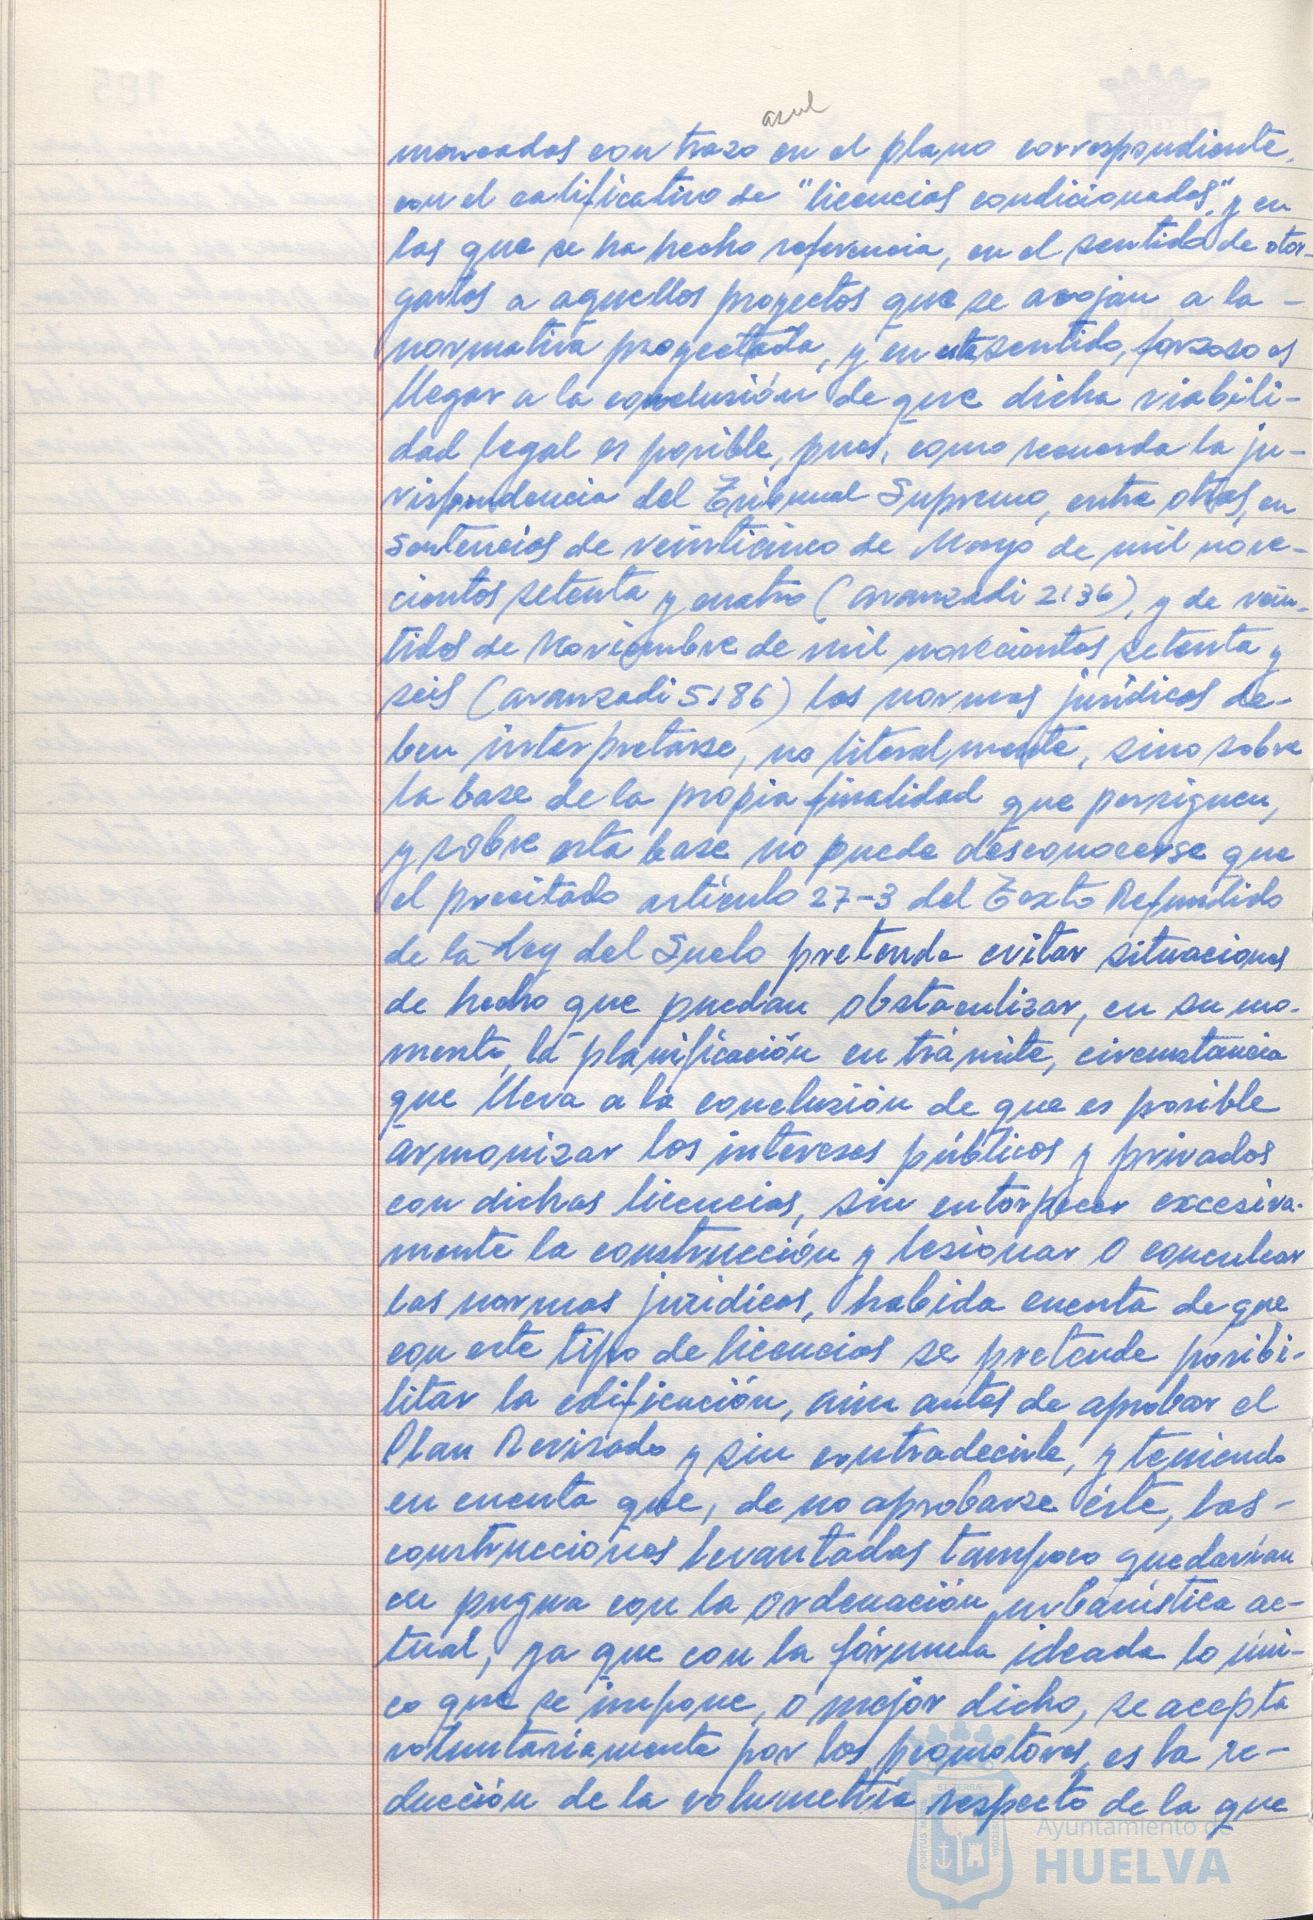 azul
marcadas con trazo en el plano correspondiente,
con el calificativo de "licencias condicionadas", y en
las que se ha hecho referencia, en el sentido de otor-
garlas a aquellos proyectos que se acojan a la -
normativa proyectada, y en este sentido, forzoso es
llegar a la conclusión de que dicha viabili-
dad legal es posible, pues, como recuerda la ju-
risprudencia del Tribunal Supremo, entre otras, en
sentencias de veinticinco de Mayo de mil nove-
cientos setenta y cuatro (aranzadi 2136), y de vein-
tidos de Noviembre de mil novecientos setenta y
seis (aranzadi 5186) las normas jurídicas de-
ben interpretarse, no literalmente, sino sobre
la base de la propia finalidad que persiguen,
y sobre esta base no puede desconocerse que
el precitado artículo 27-3 del Texto Refundido
de la Ley del Suelo pretende evitar situaciones
de hecho que puedan obstaculizar, en su mo-
mento, la planificación en trámite, circunstancia
que lleva a la conclusión de que es posible
armonizar los intereses públicos y privados
con dichas licencias, sin entorpecer excesiva-
mente la construcción y lesionar o conculcar
las normas jurídicas, habida cuenta de que
con este tipo de licencias se pretende posibi-
litar la edificación, aún antes de aprobar el
Plan Revisado y sin contradecirle, y teniendo
en cuenta que, de no aprobarse éste, las -
construcciones levantadas tampoco quedarían
en pugna con la Ordenación urbanística ac-
tual, ya que con la fórmula ideada lo úni-
co que se impone, o mejor dicho, se acepta
voluntariamente por los promotores, es la re-
ducción de la volumetría respecto de la que
Ayuntamiento de
HUELVA